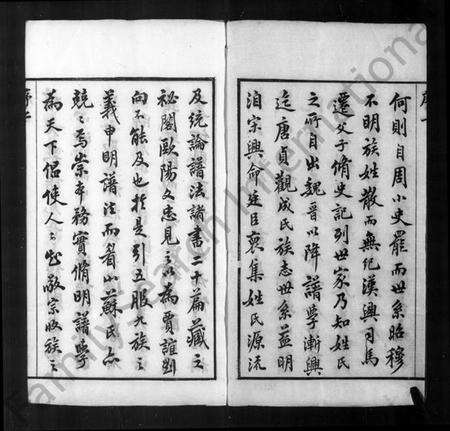 何則自周小史罷而世系昭穆
不明族姓散而無紀漢興司馬
遷父子脩史記列世家乃知姓氏
之所自出魏晉以降譜學漸興
迄唐貞觀成氏族志世系益明
洎宋興命廷臣裒集姓氏源流
及統論譜法譜書二十篇藏之
祕閣歐陽文忠見之以為賈誼劉
向不能及也於是引五服九族之
義申明譜法而眉山蘇氏亦
競競焉崇本務實脩明譜學
為天下倡使人人知敬宗收族之
FamilySearch International